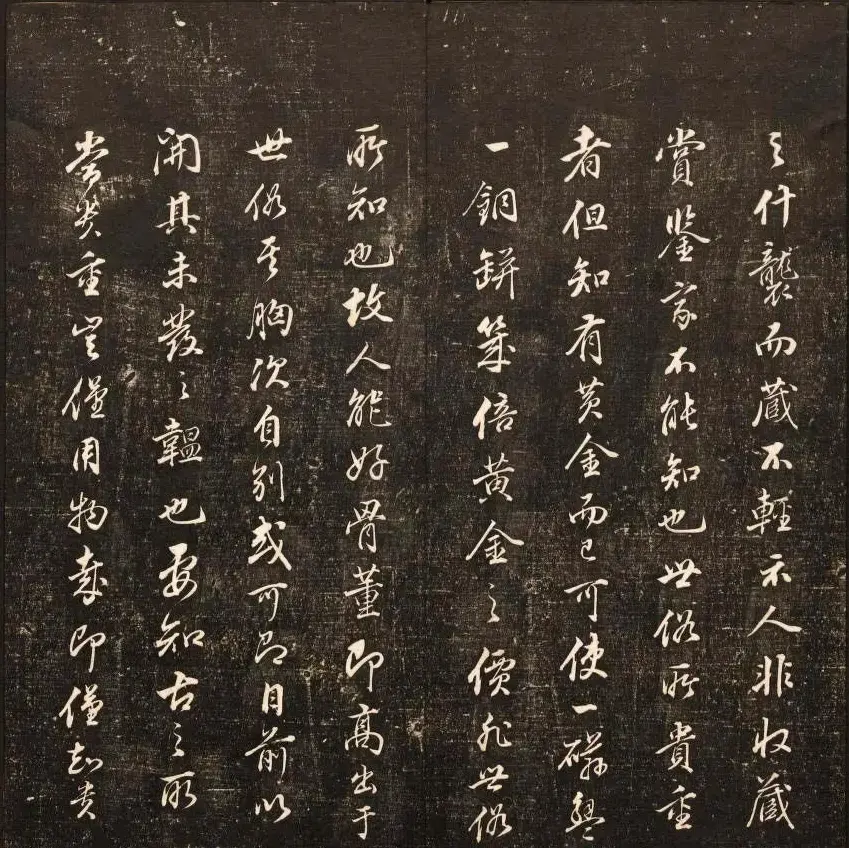 之什襲而藏不輕示人非收藏
賞鑒家不能知也世俗所貴重
者但知有黃金而已可使一磁盌
一銅缾幾倍黃金之價非世俗
所知也故人能好骨董即高出于
世俗其胸次自別或可即目前以
開其未發之韞也要知古之所
常貴重豈僅用物哉即僅知貴